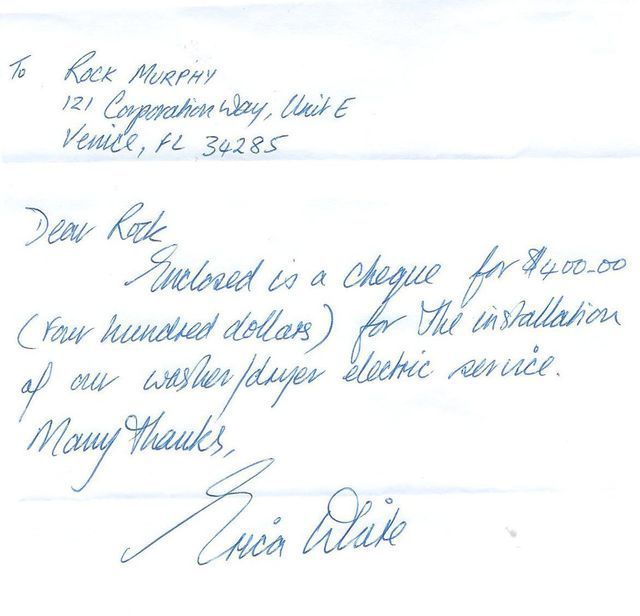 To Rock Murphy
121 Corporation Way, Unit E
Venice, FL 34285
Dear Rock
Enclosed is a cheque for $400-00
(Four hundred dollars) for the installation
of our washer/dryer electric service.
Many thanks,
Erica White